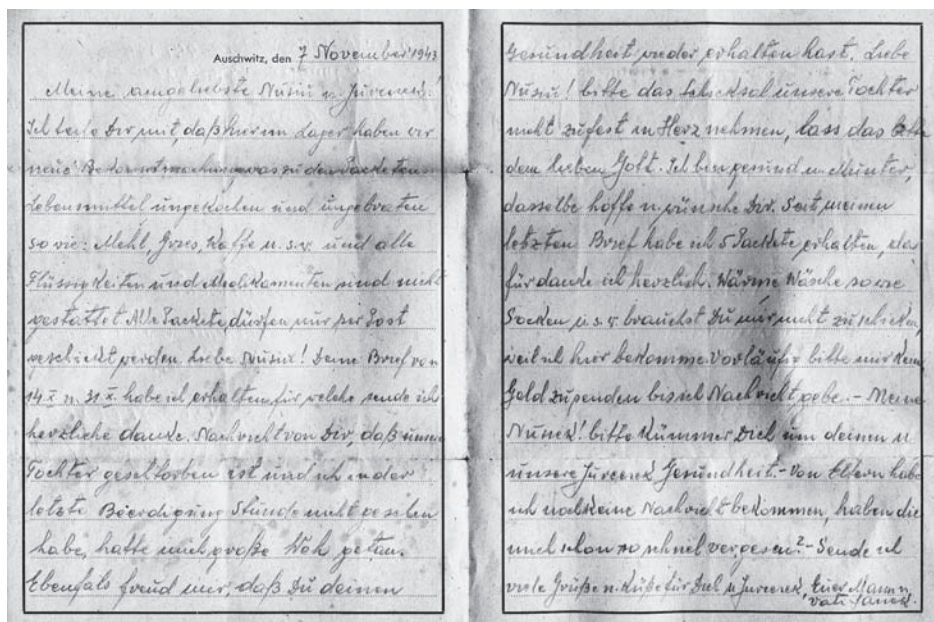 Auschwitz, den 7 November 1943
Meine amgeliebste Nusiu u. Jureczek!
Ich teile Dir mit, daß hier im Lager haben wir
neue Bekanntmachung was zu den Packeten
Lebensmittel ungekochen und ungebraten
so wie: Mehl, Gries, Kaffe u.s.w. und alle
Flüssigkeiten und Medikamenten sind nicht
gestattet. Alle Packete, dürfen nur per Post
geschickt werden. Liebe Nusiu! Deine Brief von
14 X u. 31 X. habe ich erhalten, für welche sende ich
herzliche danke. Nachricht von Dir, daß unsere
Tochter geschtorben ist und ich in der
letzte Beerdigung Stunde nicht gesehen
habe, hatte mich große Weh getan.
Ebenfals freud mir, daß Du deinen
Gesundheit wieder erhalten hast. Liebe
Nusiu! bitte das Schicksal unsere Tochter
nicht zu fest in Herz nehmen, lass das bitte
dem lieben Gott. Ich bin gesund u. Munter,
dasselbe hoffe u. wünsche Dir. Seit meinen
letzten Brief habe ich 5 Packete erhalten, da
für danke ich herzlich. Wärme Wäsche so wie
Socken u.s.w. brauchst Du mir nicht zu schicken,
weil ich hier bekomme. Vorläufig bitte mir kein
Geld zu senden bis ich Nachricht gebe. – Meine
Nusiek! bitte Kümmer Dich um deinen u
unsere Jureczek Gesundheit. – Von Eltern habe
ich noch keine Nachricht bekommen, haben die
mich schon so schnel vergesen? – Sende ich
viele Grüße u. Küße für Dich u Jureczek, Euer Mann u.
Vati Janek.